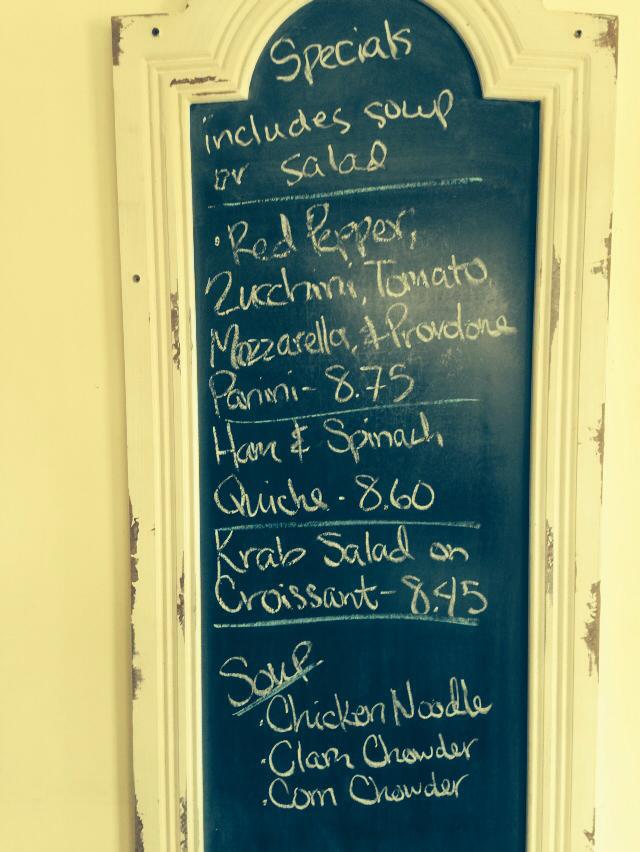 Specials
includes soup
or salad
·Red Pepper,
Zucchini, Tomato,
Mozzarella, & Provolone
Panini - 8.75
Ham & Spinach
Quiche - 8.60
Krab Salad on
Croissant - 8.45
Soup
·Chicken Noodle
·Clam Chowder
·Corn Chowder